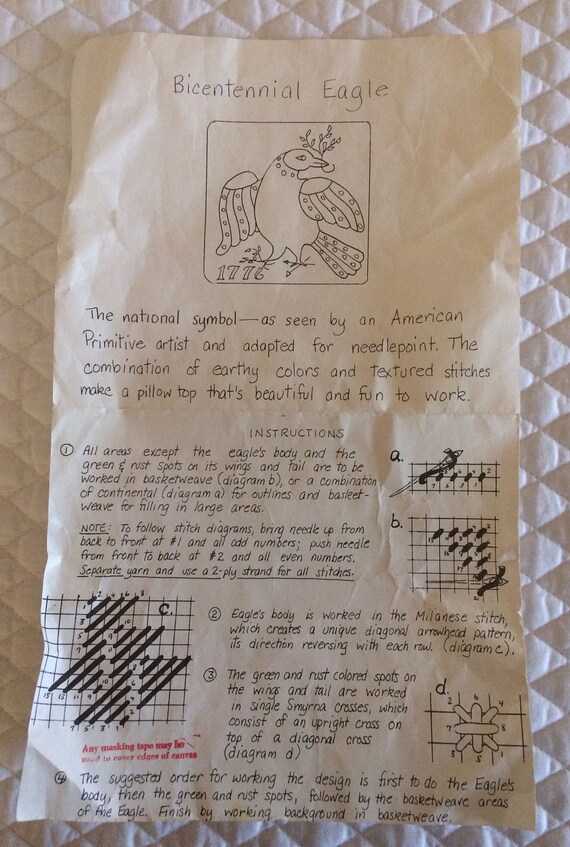 Bicentennial Eagle
1776
The national symbol—as seen by an American
Primitive artist and adapted for needlepoint. The
combination of earthy colors and textured stitches
make a pillow top that's beautiful and fun to work.
INSTRUCTIONS
① All areas except the eagle's body and the
green & rust spots on its wings and tail are to be
worked in basketweave (diagram b), or a combination
of continental (diagram a) for outlines and basket-
weave for filling in large areas.
NOTE: To follow stitch diagrams, bring needle up from
back to front at #1 and all odd numbers; push needle
from front to back at #2 and all even numbers.
Separate yarn and use a 2-ply strand for all stitches.
a.
b.
c.
② Eagle's body is worked in the Milanese stitch,
which creates a unique diagonal arrowhead pattern,
its direction reversing with each row. (diagram c).
③ The green and rust colored spots on
the wings and tail are worked
in single Smyrna crosses, which
consist of an upright cross on
top of a diagonal cross
(diagram d)
d.
Any masking tape may be
used to cover edges of canvas
④ The suggested order for working the design is first to do the Eagle's
body, then the green and rust spots, followed by the basketweave areas
of the Eagle. Finish by working background in basketweave.